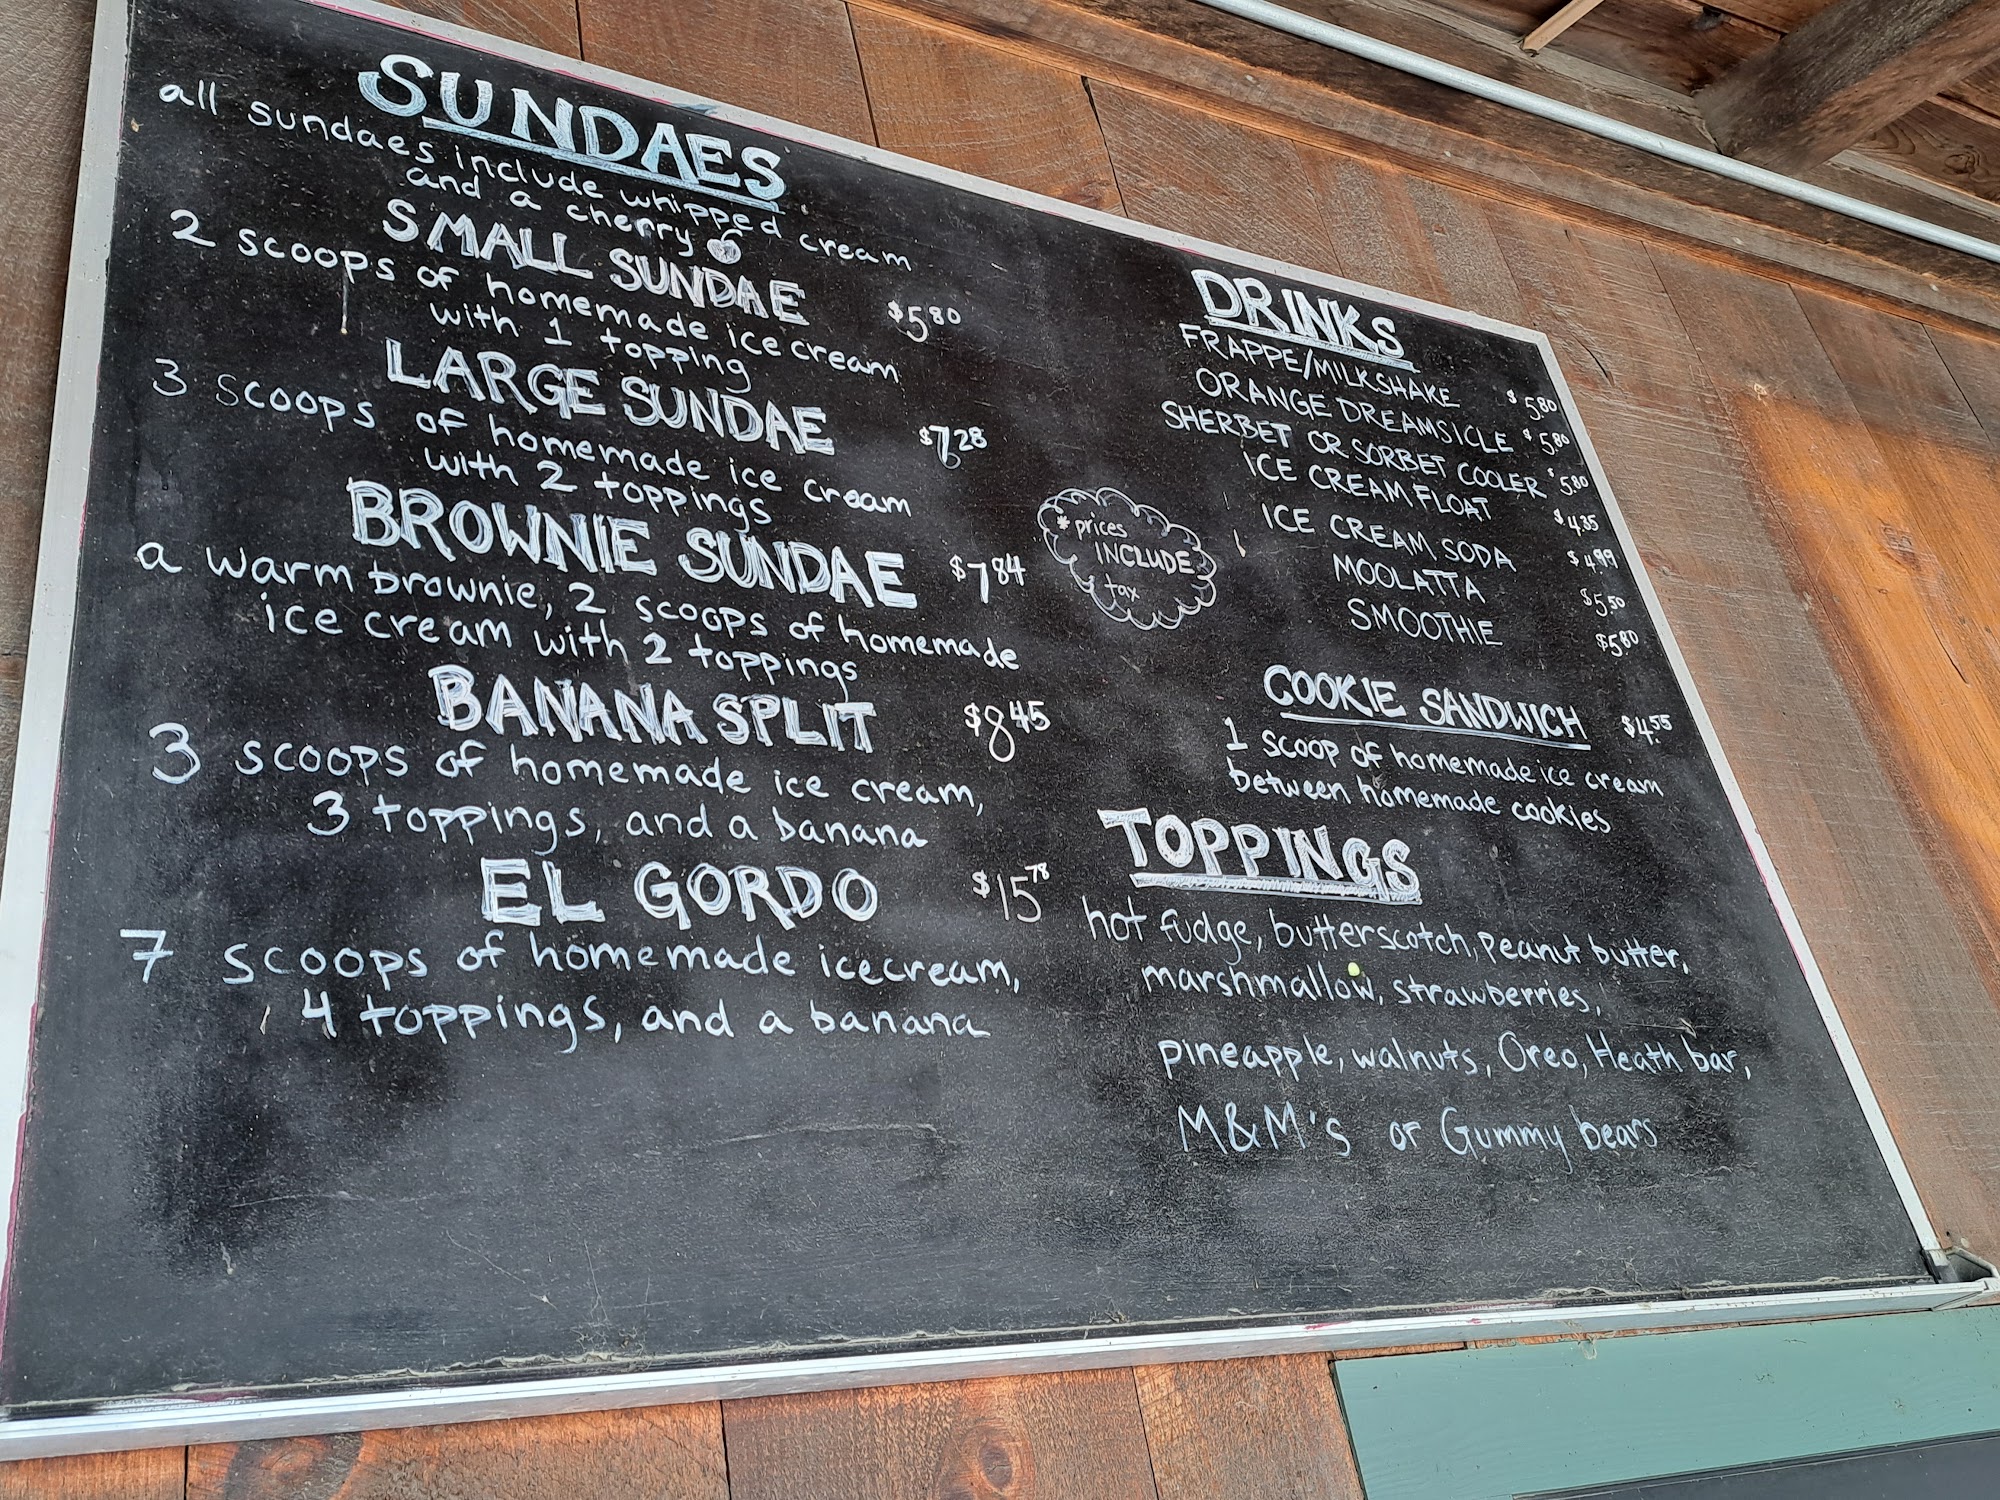 SUNDAES
all sundaes include whipped cream
and a cherry
SMALL SUNDAE $5.80
2 scoops of homemade ice cream
with 1 topping
LARGE SUNDAE $7.28
3 scoops of homemade ice cream
with 2 toppings
BROWNIE SUNDAE $7.84
a warm brownie, 2 scoops of homemade
ice cream with 2 toppings
BANANA SPLIT $8.45
3 scoops of homemade ice cream,
3 toppings, and a banana
EL GORDO $15.78
7 scoops of homemade icecream,
4 toppings, and a banana
* prices
INCLUDE
tax
DRINKS
FRAPPE/MILKSHAKE $5.80
ORANGE DREAMSICLE $5.80
SHERBET OR SORBET COOLER $5.80
ICE CREAM FLOAT $4.35
ICE CREAM SODA $4.99
MOOLATTA $5.50
SMOOTHIE $5.80
COOKIE SANDWICH $4.55
1 scoop of homemade ice cream
between homemade cookies
TOPPINGS
hot fudge, butterscotch, peanut butter,
marshmallow, strawberries,
pineapple, walnuts, Oreo, Heath bar,
M&M's or Gummy bears